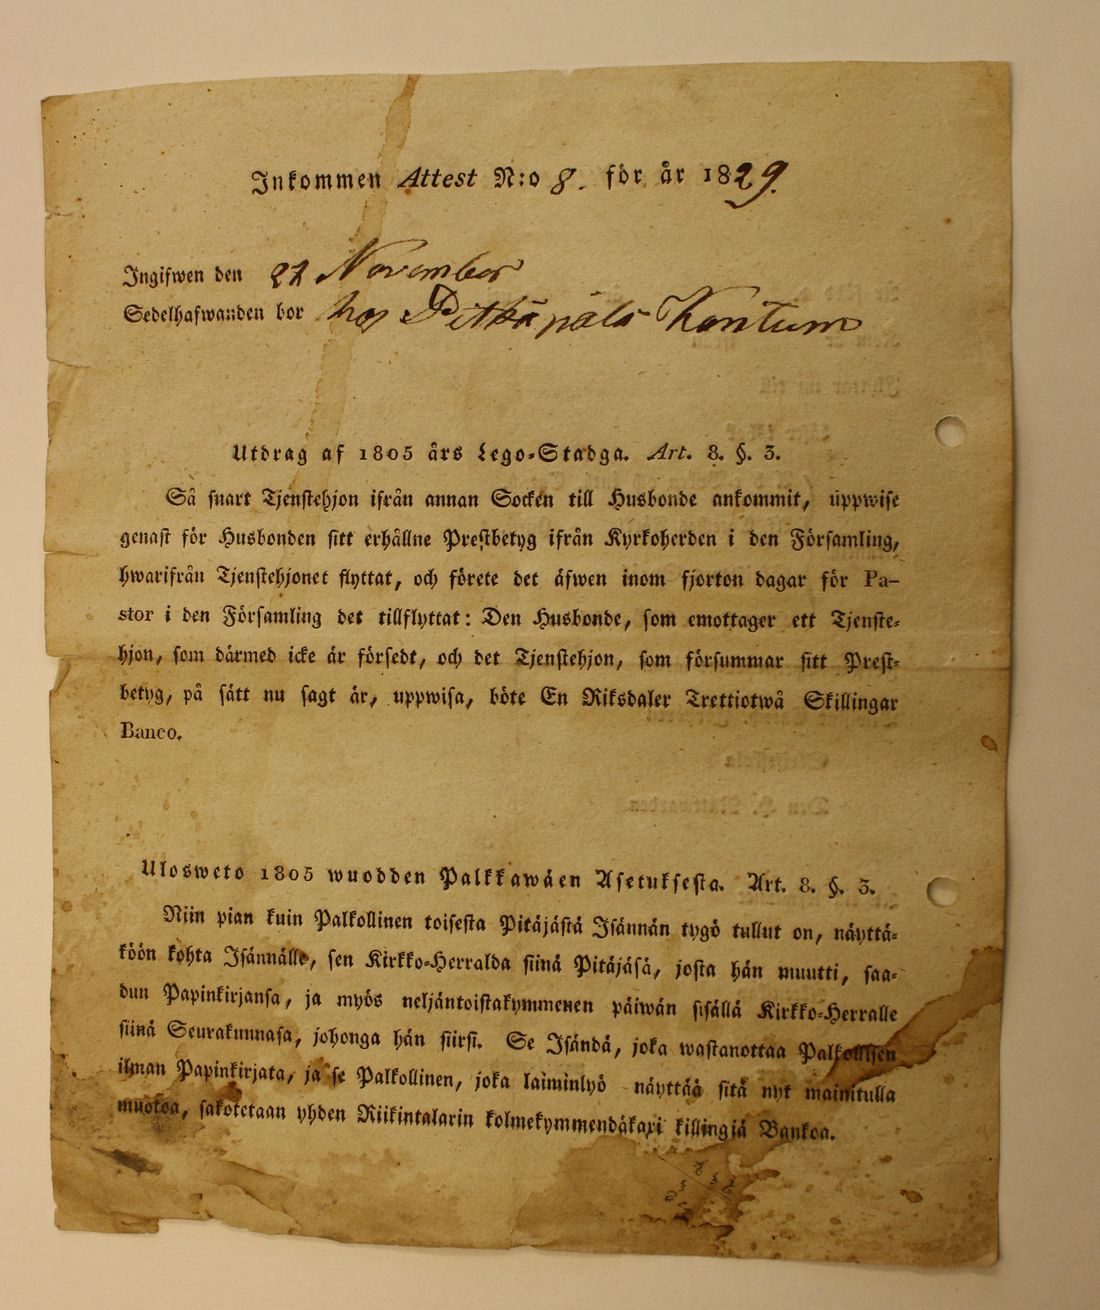 Inkommen Attest N:o 8. för år 1829.
Ingifwen den 22 November
Sedelhafwanden bor hos Pitkäpälä Kontum
Utdrag af 1805 års Lego-Stadga. Art. 8. §. 3.
Så snart Tjenstehjon ifrån annan Socken till Husbonde ankommit, uppwise
genast för Husbonden sitt erhållne Prestbetyg ifrån Kyrkoherden i den Församling,
hwarifrån Tjenstehjonet flyttat, och förete det äfwen inom fjorton dagar för Pa-
stor i den Församling det tillflyttat: Den Husbonde, som emottager ett Tjenste-
hjon, som därmed icke är försedt, och det Tjenstehjon, som försummar sitt Prest-
betyg, på sätt nu sagt är, uppwisa, böte En Riksdaler Trettiotwå Skillingar
Banco.
Ulosweto 1805 wuodden Palkkawäen Asetuksesta. Art. 8. §. 3.
Niin pian kuin Palkollinen toisesta Pitäjästä Isännän tygö tullut on, näyttä-
köön kohta Isännälle, sen Kirkko-Herralda siinä Pitäjäsä, josta hän muutti, saa-
dun Papinkirjansa, ja myös neljäntoistakymmenen päiwän sisällä Kirkko-Herralle
siinä Seurakunnasa, johonga hän siirsi. Se Isändä, joka wastanottaa Palkollisen
ilman Papinkirjata, ja se Palkollinen, joka laiminlyö näyttää sitä nyt mainitulla
muotoa, sakotetaan yhden Riikintalarin kolmekymmendäkaxi killingiä Bankoa.